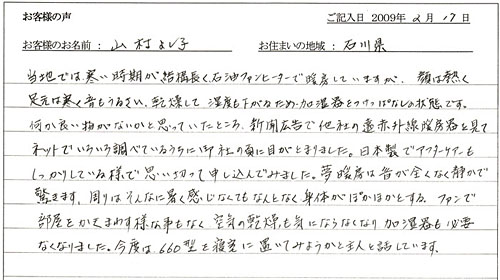 お客様の声 ご記入日 2009年 2月 17日
お客様のお名前： 山村よし子 お住まいの地域： 石川県
当地では寒い時期が結構長く石油ファンヒーターで暖房していますが、顔は熱く
足元は寒く音もうるさい、乾燥して湿度も下がるため加湿器もつけっぱなしの状態です。
何か良い物がないかと思っていたところ、新聞広告で他社の遠赤外線暖房器を見て
ネットでいろいろ調べているうちに御社の頁に目がとまりました。日本製でアフターケアーも
しっかりしている様で思い切って申し込んでみました。夢暖房は音が全くなく静かで
驚きます。周りはそんなに暑く感じなくてもなんとなく身体がぽかぽかとする。ファンで
部屋をかきまわす様な事もなく空気の乾燥も気にならなくなり加湿器も必要
なくなりました。今度は660型を寝室に置いてみようかと主人と話しています。